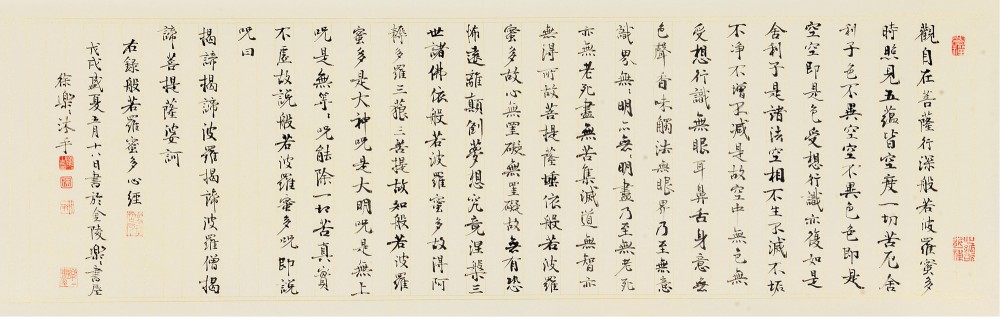 觀自在菩薩行深般若波羅蜜多
時照見五蘊皆空度一切苦厄舍
利子色不異空空不異色色即是
空空即是色受想行識亦復如是
舍利子是諸法空相不生不滅不垢
不淨不增不減是故空中無色無
受想行識無眼耳鼻舌身意無
色聲香味觸法無眼界乃至無意
識界無〻明亦無〻明盡乃至無老死
亦無老死盡無苦集滅道無智亦
無得所故菩提薩埵依般若波羅
蜜多故心無罣礙無罣礙故無有恐
怖遠離顛倒夢想究竟涅槃三
世諸佛依般若波羅蜜多故得阿
耨多羅三藐三菩提故知般若波羅
蜜多是大神咒是大明咒是無上
咒是無等〻咒能除一切苦真實
不虛故說般若波羅蜜多咒即說
咒曰
揭諦揭諦波羅揭諦波羅僧揭
諦菩提薩婆訶
右錄般若羅蜜多心經
戊戌盛夏月十日書於金陵樂〻書屋
徐樂〻沐手